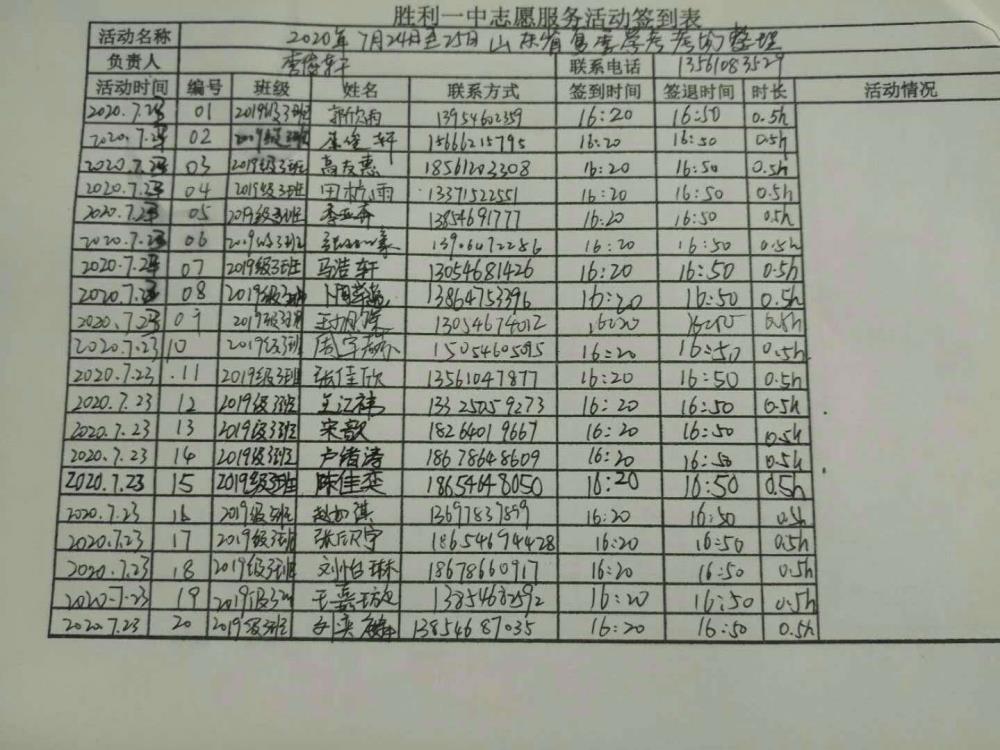 胜利一中志愿服务活动签到表
活动名称 2020年7月24日至25日山东省夏季学考考场整理
负责人 李俊轩 联系电话 13561083529
活动时间 编号 班级 姓名 联系方式 签到时间 签退时间 时长 活动情况
2020.7.23 01 2019级3班 13954602359 16:20 16:50 0.5h
2020.7.23 02 2019级3班 李俊轩 15666215795 16:20 16:50 0.5h
2020.7.23 03 2019级3班 高友惠 18561203308 16:20 16:50 0.5h
2020.7.23 04 2019级3班 田杭雨 13371522551 16:20 16:50 0.5h
2020.7.23 05 2019级3班 13854691777 16:20 16:50 0.5h
2020.7.23 06 2019级3班 13906472286 16:20 16:50 0.5h
2020.7.23 07 2019级3班 马浩轩 13054681426 16:20 16:50 0.5h
2020.7.23 08 2019级3班 13864753396 16:20 16:50 0.5h
2020.7.23 09 2019级3班 13054674012 16:20 16:50 0.5h
2020.7.23 10 2019级3班 15054605095 16:20 16:50 0.5h
2020.7.23 11 2019级3班 张佳欣 13561047877 16:20 16:50 0.5h
2020.7.23 12 2019级3班 王江祎 13325059273 16:20 16:50 0.5h
2020.7.23 13 2019级3班 宋歌 18264019667 16:20 16:50 0.5h
2020.7.23 14 2019级3班 卢绪涛 18678648609 16:20 16:50 0.5h
2020.7.23 15 2019级3班 陈佳奕 18654648050 16:20 16:50 0.5h
2020.7.23 16 2019级3班 13697837899 16:20 16:50 0.5h
2020.7.23 17 2019级3班 18654694428 16:20 16:50 0.5h
2020.7.23 18 2019级3班 刘怡琳 18678660917 16:20 16:50 0.5h
2020.7.23 19 2019级3班 13854682592 16:20 16:50 0.5h
2020.7.23 20 2019级3班 13854687035 16:20 16:50 0.5h